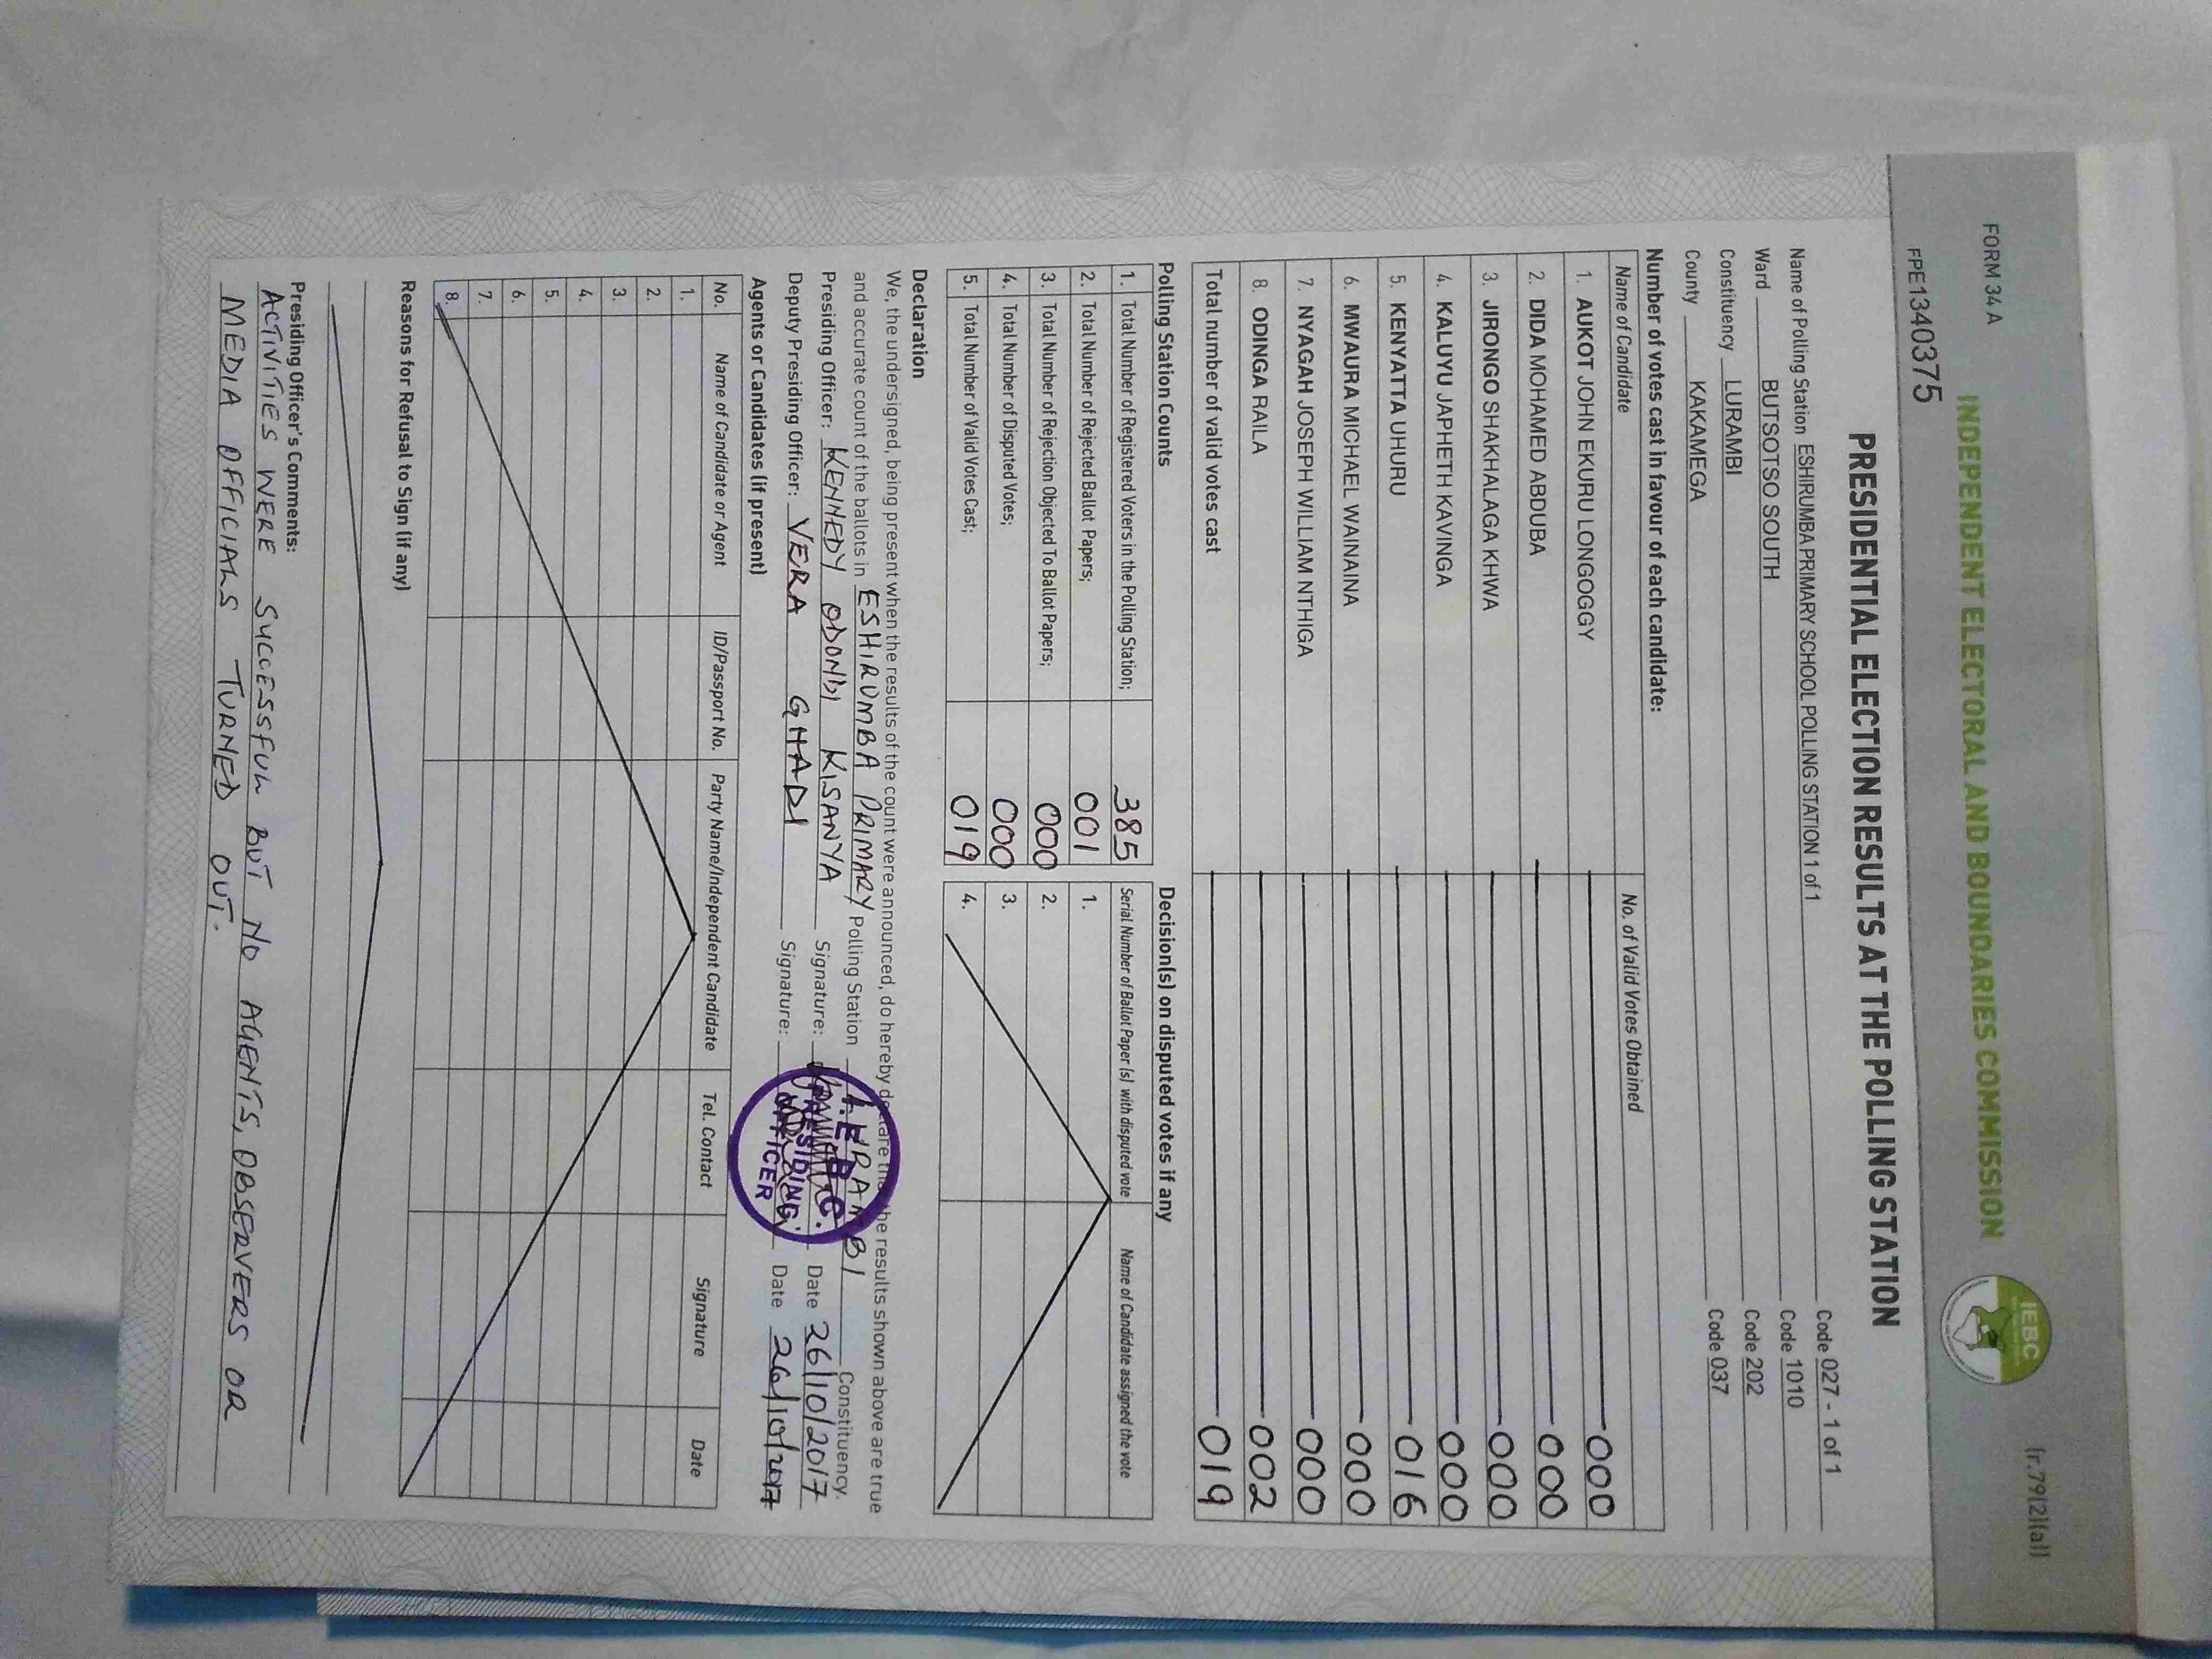 FORM 34 A
(r.79(2)(a))
INDEPENDENT ELECTORAL AND BOUNDARIES COMMISSION
IEBC
FPE1340375
PRESIDENTIAL ELECTION RESULTS AT THE POLLING STATION
Name of Polling Station ESHIRUMBA PRIMARY SCHOOL POLLING STATION 1 of 1 Code 027 - 1 of 1
Ward BUTSOTSO SOUTH Code 1010
Constituency LURAMBI Code 202
County KAKAMEGA Code 037
Number of votes cast in favour of each candidate:
Name of Candidate No. of Valid Votes Obtained
1. AUKOT JOHN EKURU LONGOGGY 000
2. DIDA MOHAMED ABDUBA 000
3. JIRONGO SHAKHALAGA KHWA 000
4. KALUYU JAPHETH KAVINGA 000
5. KENYATTA UHURU 016
6. MWAURA MICHAEL WAINAINA 000
7. NYAGAH JOSEPH WILLIAM NTHIGA 000
8. ODINGA RAILA 002
Total number of valid votes cast 019
Polling Station Counts
1. Total Number of Registered Voters in the Polling Station; 385
2. Total Number of Rejected Ballot Papers; 001
3. Total Number of Rejection Objected To Ballot Papers; 000
4. Total Number of Disputed Votes; 000
5. Total Number of Valid Votes Cast; 019
Decision(s) on disputed votes if any
Serial Number of Ballot Paper (s) with disputed vote Name of Candidate assigned the vote
1.
2.
3.
4.
Declaration
We, the undersigned, being present when the results of the count were announced, do hereby declare that the results shown above are true
and accurate count of the ballots in ESHIRUMBA PRIMARY Polling Station LURAMBI Constituency.
Presiding Officer: KENNEDY ODONDI KISANYA Signature: Date 26/10/2017
Deputy Presiding Officer: VERA GHADI Signature: Date 26/10/2017
I.E.B.C.
PRESIDING
OFFICER
Agents or Candidates (if present)
No. Name of Candidate or Agent ID/Passport No. Party Name/Independent Candidate Tel. Contact Signature Date
1.
2.
3.
4.
5.
6.
7.
8.
Reasons for Refusal to Sign (if any)
Presiding Officer's Comments:
ACTIVITIES WERE SUCCESSFUL BUT NO AGENTS, OBSERVERS OR
MEDIA OFFICIALS TURNED OUT.